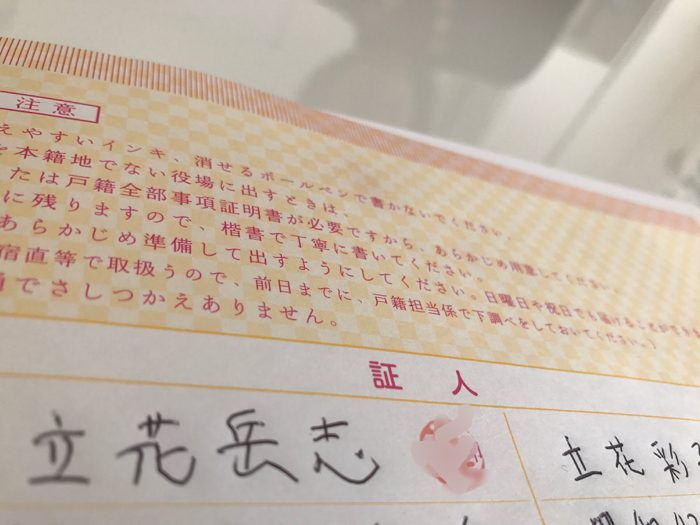 注意
えやすいインキ、消せるボールペンで書かないでください。
を本籍地でない役場に出すときは、
たは戸籍全部事項証明書が必要ですから、あらかじめ用意してください。
に残りますので、楷書で丁寧に書いてください。
あらかじめ準備して出すようにしてください。日曜日や祝日でも届けることができ
宿直等で取扱うので、前日までに、戸籍担当係で下調べをしておいてください。)
でさしつかえありません。
証人
立花岳志
立花彩